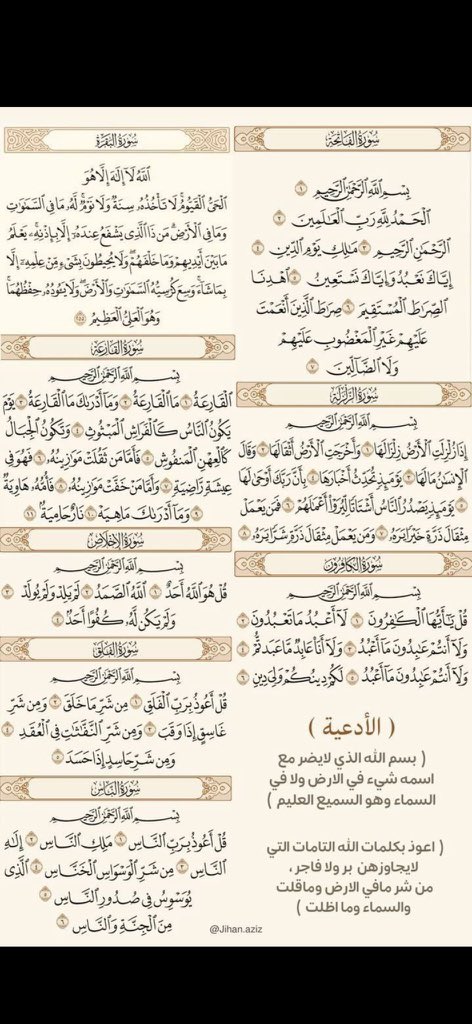 سُورَةُ الفَاتِحَةِ
بِسْمِ ٱللَّهِ ٱلرَّحْمَٰنِ ٱلرَّحِيمِ ١
ٱلْحَمْدُ لِلَّهِ رَبِّ ٱلْعَٰلَمِينَ ٢
ٱلرَّحْمَٰنِ ٱلرَّحِيمِ ٣ مَٰلِكِ يَوْمِ ٱلدِّينِ ٤
إِيَّاكَ نَعْبُدُ وَإِيَّاكَ نَسْتَعِينُ ٥ ٱهْدِنَا
ٱلصِّرَٰطَ ٱلْمُسْتَقِيمَ ٦ صِرَٰطَ ٱلَّذِينَ أَنْعَمْتَ
عَلَيْهِمْ غَيْرِ ٱلْمَغْضُوبِ عَلَيْهِمْ
وَلَا ٱلضَّآلِّينَ ٧
سُورَةُ الزَّلْزَلَةِ
بِسْمِ ٱللَّهِ ٱلرَّحْمَٰنِ ٱلرَّحِيمِ
إِذَا زُلْزِلَتِ ٱلْأَرْضُ زِلْزَالَهَا ١ وَأَخْرَجَتِ ٱلْأَرْضُ أَثْقَالَهَا ٢ وَقَالَ
ٱلْإِنسَٰنُ مَا لَهَا ٣ يَوْمَئِذٍ تُحَدِّثُ أَخْبَارَهَا ٤ بِأَنَّ رَبَّكَ أَوْحَىٰ لَهَا
٥ يَوْمَئِذٍ يَصْدُرُ ٱلنَّاسُ أَشْتَاتًا لِّيُرَوْا۟ أَعْمَٰلَهُمْ ٦ فَمَن يَعْمَلْ
مِثْقَالَ ذَرَّةٍ خَيْرًا يَرَهُۥ ٧ وَمَن يَعْمَلْ مِثْقَالَ ذَرَّةٍ شَرًّا يَرَهُۥ ٨
سُورَةُ الكَافِرُونَ
بِسْمِ ٱللَّهِ ٱلرَّحْمَٰنِ ٱلرَّحِيمِ
قُلْ يَٰٓأَيُّهَا ٱلْكَٰفِرُونَ ١ لَآ أَعْبُدُ مَا تَعْبُدُونَ ٢
وَلَآ أَنتُمْ عَٰبِدُونَ مَآ أَعْبُدُ ٣ وَلَآ أَنَا۠ عَابِدٌ مَّا عَبَدتُّمْ ٤
وَلَآ أَنتُمْ عَٰبِدُونَ مَآ أَعْبُدُ ٥ لَكُمْ دِينُكُمْ وَلِىَ دِينِ ٦
( الأدعية )
( بسم الله الذي لايضر مع
اسمه شيء في الارض ولا في
السماء وهو السميع العليم )
( اعوذ بكلمات الله التامات التي
لايجاوزهن بر ولا فاجر ،
من شر مافي الارض وماقلت
والسماء وما اظلت )
سُورَةُ البَقَرَةِ
ٱللَّهُ لَآ إِلَٰهَ إِلَّا هُوَ
ٱلْحَىُّ ٱلْقَيُّومُ لَا تَأْخُذُهُۥ سِنَةٌ وَلَا نَوْمٌ لَّهُۥ مَا فِى ٱلسَّمَٰوَٰتِ
وَمَا فِى ٱلْأَرْضِ مَن ذَا ٱلَّذِى يَشْفَعُ عِندَهُۥٓ إِلَّا بِإِذْنِهِۦ يَعْلَمُ
مَا بَيْنَ أَيْدِيهِمْ وَمَا خَلْفَهُمْ وَلَا يُحِيطُونَ بِشَىْءٍ مِّنْ عِلْمِهِۦٓ إِلَّا
بِمَا شَآءَ وَسِعَ كُرْسِيُّهُ ٱلسَّمَٰوَٰتِ وَٱلْأَرْضَ وَلَا يَـُٔودُهُۥ حِفْظُهُمَا
وَهُوَ ٱلْعَلِىُّ ٱلْعَظِيمُ ٢٥٥
سُورَةُ القَارِعَةِ
بِسْمِ ٱللَّهِ ٱلرَّحْمَٰنِ ٱلرَّحِيمِ
ٱلْقَارِعَةُ ١ مَا ٱلْقَارِعَةُ ٢ وَمَآ أَدْرَىٰكَ مَا ٱلْقَارِعَةُ ٣ يَوْمَ
يَكُونُ ٱلنَّاسُ كَٱلْفَرَاشِ ٱلْمَبْثُوثِ ٤ وَتَكُونُ ٱلْجِبَالُ
كَٱلْعِهْنِ ٱلْمَنفُوشِ ٥ فَأَمَّا مَن ثَقُلَتْ مَوَٰزِينُهُۥ ٦ فَهُوَ فِى
عِيشَةٍ رَّاضِيَةٍ ٧ وَأَمَّا مَنْ خَفَّتْ مَوَٰزِينُهُۥ ٨ فَأُمُّهُۥ هَاوِيَةٌ
٩ وَمَآ أَدْرَىٰكَ مَا هِيَهْ ١٠ نَارٌ حَامِيَةٌ ١١
سُورَةُ الإِخْلَاصِ
بِسْمِ ٱللَّهِ ٱلرَّحْمَٰنِ ٱلرَّحِيمِ
قُلْ هُوَ ٱللَّهُ أَحَدٌ ١ ٱللَّهُ ٱلصَّمَدُ ٢ لَمْ يَلِدْ وَلَمْ يُولَدْ ٣
وَلَمْ يَكُن لَّهُۥ كُفُوًا أَحَدٌ ٤
سُورَةُ الفَلَقِ
بِسْمِ ٱللَّهِ ٱلرَّحْمَٰنِ ٱلرَّحِيمِ
قُلْ أَعُوذُ بِرَبِّ ٱلْفَلَقِ ١ مِن شَرِّ مَا خَلَقَ ٢ وَمِن شَرِّ
غَاسِقٍ إِذَا وَقَبَ ٣ وَمِن شَرِّ ٱلنَّفَّٰثَٰتِ فِى ٱلْعُقَدِ ٤
وَمِن شَرِّ حَاسِدٍ إِذَا حَسَدَ ٥
سُورَةُ النَّاسِ
بِسْمِ ٱللَّهِ ٱلرَّحْمَٰنِ ٱلرَّحِيمِ
قُلْ أَعُوذُ بِرَبِّ ٱلنَّاسِ ١ مَلِكِ ٱلنَّاسِ ٢ إِلَٰهِ
ٱلنَّاسِ ٣ مِن شَرِّ ٱلْوَسْوَاسِ ٱلْخَنَّاسِ ٤ ٱلَّذِى
يُوَسْوِسُ فِى صُدُورِ ٱلنَّاسِ ٥
مِنَ ٱلْجِنَّةِ وَٱلنَّاسِ ٦
@Jihan.aziz